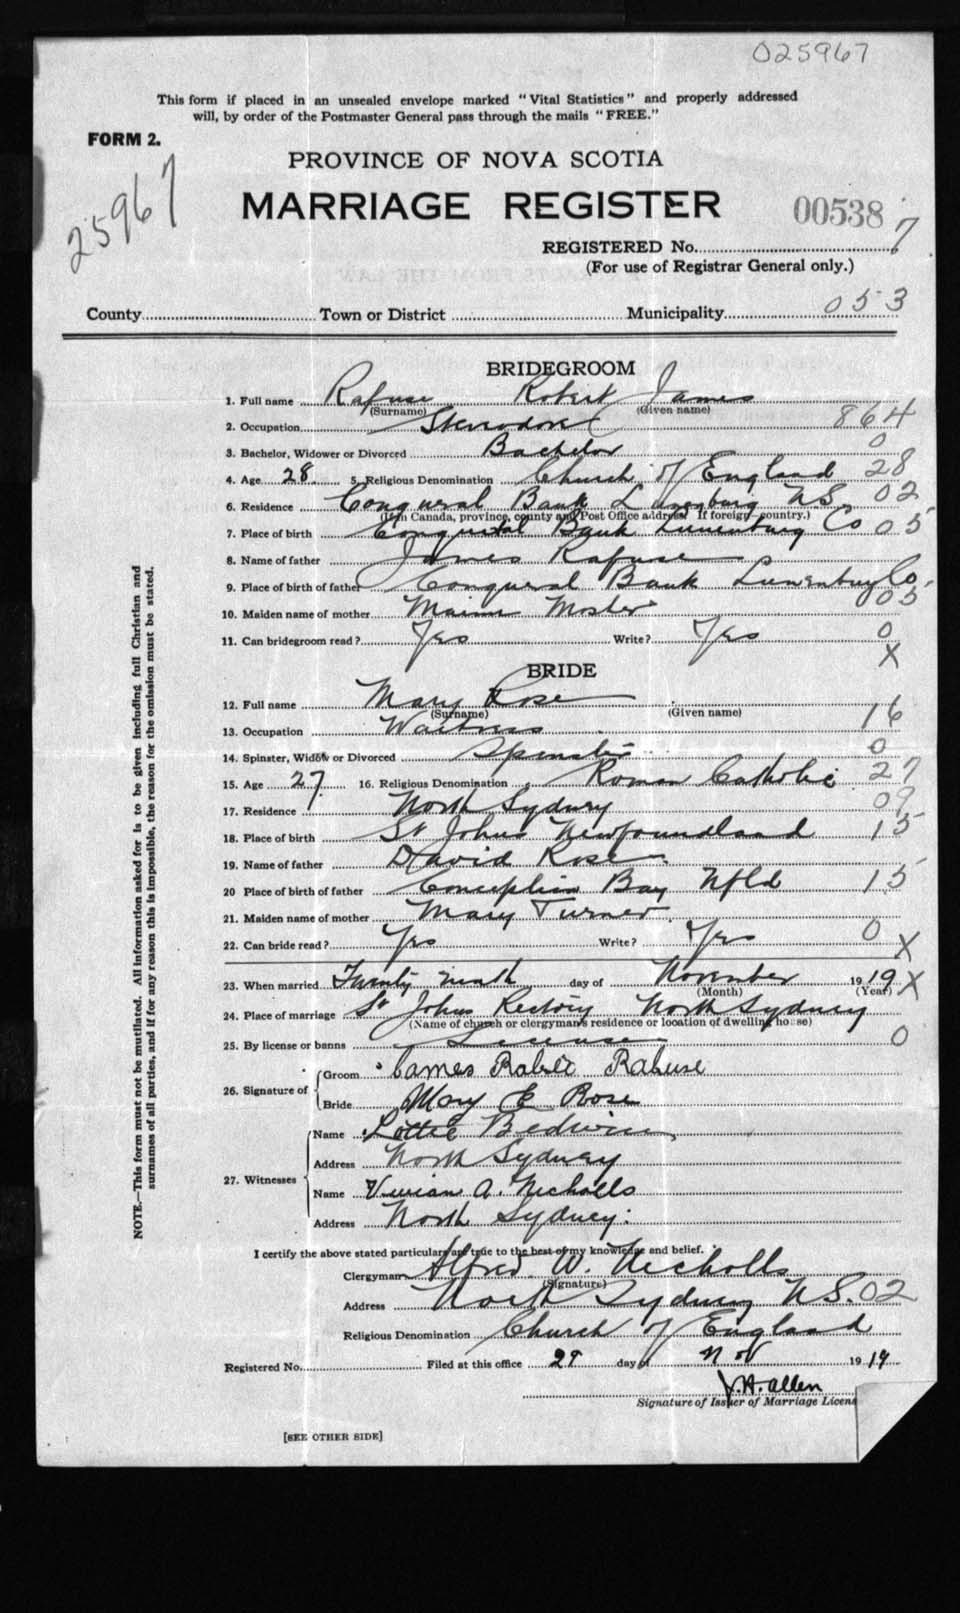 025967
This form if placed in an unsealed envelope marked "Vital Statistics" and properly addressed
will, by order of the Postmaster General pass through the mails "FREE."
FORM 2.
25967
PROVINCE OF NOVA SCOTIA
MARRIAGE REGISTER
005387
REGISTERED No.
(For use of Registrar General only.)
County Town or District Municipality 053
BRIDEGROOM
1. Full name Rafuse Robert James
(Surname) (Given name)
2. Occupation 864
3. Bachelor, Widower or Divorced Bachelor 0
4. Age 28 5. Religious Denomination Church of England 28
6. Residence Conqueral Bank Lunenburg N.S. 02
(If in Canada, province, county and Post Office address. If foreign country.)
7. Place of birth Conqueral Bank Lunenburg Co 05
8. Name of father James Rafuse
9. Place of birth of father Conqueral Bank Lunenburg Co.
10. Maiden name of mother Mosher 005
11. Can bridegroom read? Yes Write? Yes 0
X
BRIDE
12. Full name Mary Rose
(Surname) (Given name)
13. Occupation Waitress 16
14. Spinster, Widow or Divorced Spinster 0
15. Age 27 16. Religious Denomination Roman Catholic 27
17. Residence North Sydney 09
18. Place of birth St Johns Newfoundland 15
19. Name of father David Rose
20 Place of birth of father Conception Bay Nfld 15
21. Maiden name of mother Mary Turner
22. Can bride read? Yes Write? Yes 0 X
23. When married Twenty ninth day of November 1919 X
(Month) (Year)
24. Place of marriage St Johns Rectory North Sydney
(Name of church or clergyman's residence or location of dwelling house)
25. By license or banns License 0
26. Signature of Groom James Rafuse
Bride Mary E Rose
27. Witnesses Name Lottie
Address North Sydney
Name Vivian A. Nicholls
Address North Sydney.
I certify the above stated particulars are true to the best of my knowledge and belief.
Clergyman Alfred W. Nicholls
(Signature)
Address North Sydney N.S. 02
Religious Denomination Church of England
Registered No. Filed at this office 29 day of Nov 1919
J. H. Allen
Signature of Issuer of Marriage Licens
[SEE OTHER SIDE]
NOTE.—This form must not be mutilated. All information asked for is to be given including full Christian and
surnames of all parties, and if for any reason this is impossible, the reason for the omission must be stated.